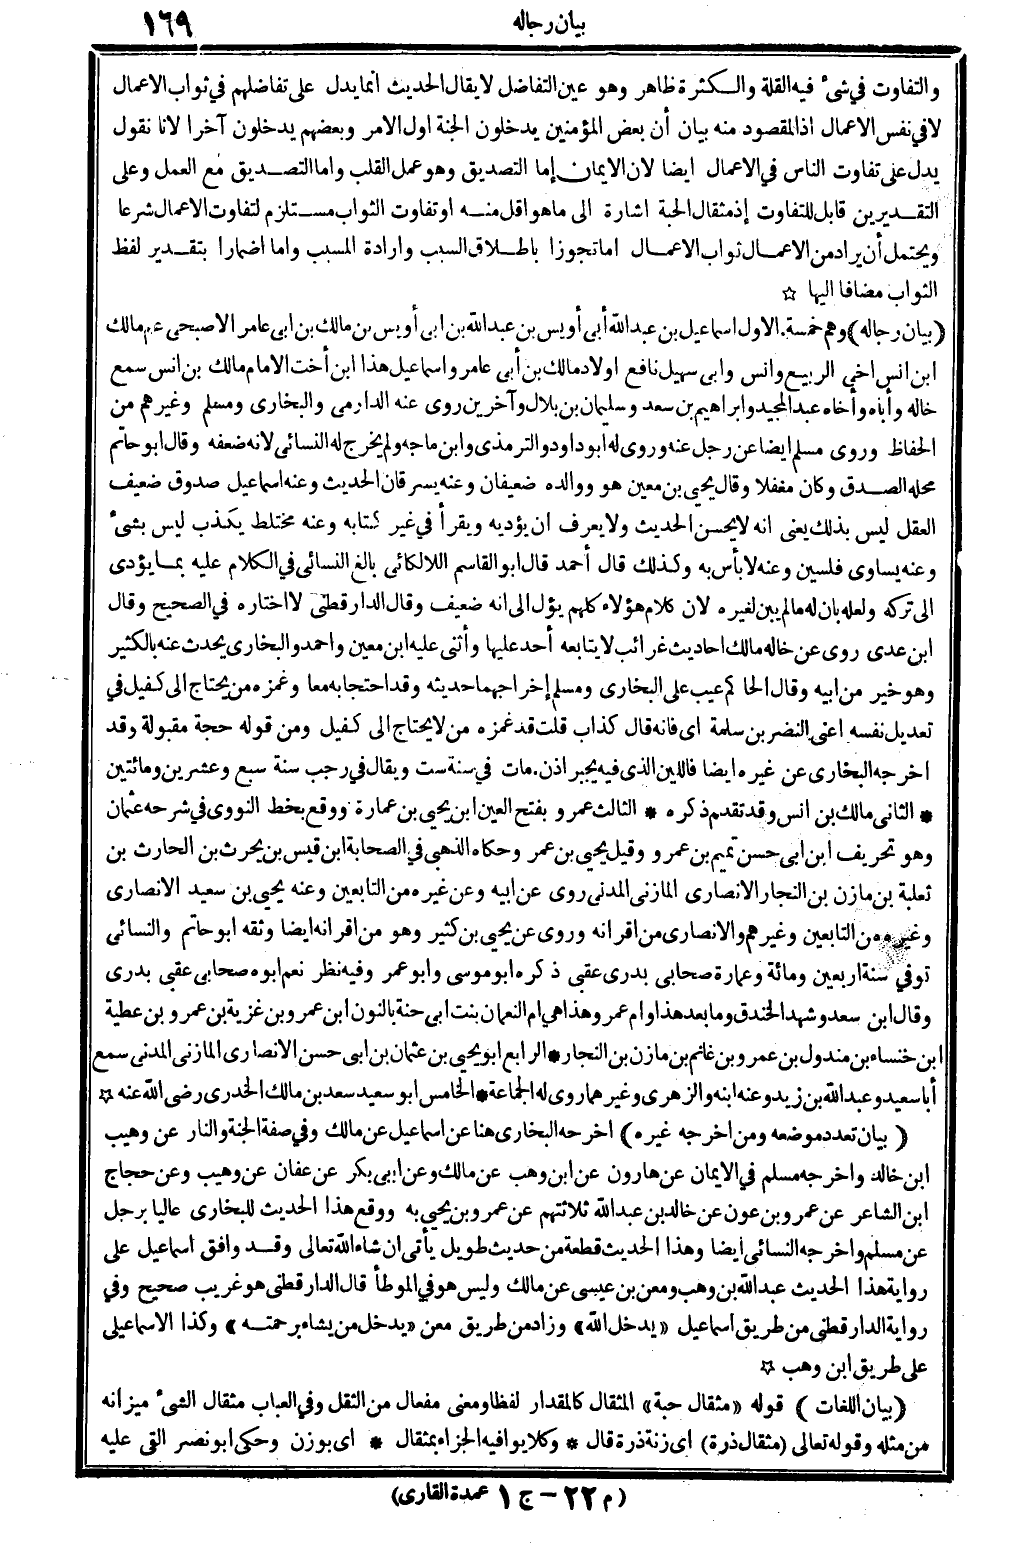 بيان رجاله ١٦٩
والتفاوت في شئ فيه القلة والكثرة ظاهر وهو عين التفاضل لا يقال الحديث انما يدل على تفاضلهم في ثواب الاعمال
لا في نفس الاعمال اذ المقصود منه بيان أن بعض المؤمنين يدخلون الجنة اول الامر وبعضهم يدخلون آخرا لانا نقول
يدل على تفاوت الناس في الاعمال ايضا لان الايمان إما التصديق وهو عمل القلب واما التصديق مع العمل وعلى
التقديرين قابل للتفاوت إذ مثقال الحبة اشارة الى ما هو اقل منه او تفاوت الثواب مستلزم لتفاوت الاعمال شرعا
ويحتمل أن يراد من الاعمال ثواب الاعمال اما تجوزا باطلاق السبب وارادة المسبب واما اضمارا بتقدير لفظ
الثواب مضافا اليها ☆
(بيان رجاله) وهم خمسة. الاول اسماعيل بن عبد الله أبى أويس بن عبد الله بن ابى أويس بن مالك بن ابى عامر الاصبحى عم مالك
ابن انس اخى الربيع وانس وابى سهيل نافع اولاد مالك بن أبى عامر واسماعيل هذا ابن أخت الامام مالك بن انس سمع
خاله وأباه وأخاه عبد المجيد وابراهيم بن سعد وسليمان بن بلال وآخرين روى عنه الدارمى والبخارى ومسلم وغيرهم من
الحفاظ وروى مسلم ايضا عن رجل عنه وروى له ابو داود والترمذى وابن ماجه ولم يخرج له النسائى لانه ضعفه وقال ابو حاتم
محله الصدق وكان مغفلا وقال يحيى بن معين هو ووالده ضعيفان وعنه يسرقان الحديث وعنه اسماعيل صدوق ضعيف
العقل ليس بذلك يعنى انه لا يحسن الحديث ولا يعرف ان يؤديه ويقرأ في غير كتابه وعنه مختلط يكذب ليس بشئ
وعنه يساوى فلسين وعنه لا بأس به وكذلك قال أحمد قال ابو القاسم اللالكائى بالغ النسائى في الكلام عليه بما يؤدى
الى تركه ولعله بان له مالم يبن لغيره لان كلام هؤلاء كلهم يؤل الى انه ضعيف وقال الدارقطنى لا اختاره في الصحيح وقال
ابن عدى روى عن خاله مالك احاديث غرائب لا يتابعه أحد عليها وأثنى عليه ابن معين واحمد والبخارى يحدث عنه بالكثير
وهو خير من ابيه وقال الحاكم عيب على البخارى ومسلم إخراجهما حديثه وقد احتجا به معا وغمزه من يحتاج الى كفيل في
تعديل نفسه اعنى النضر بن سلمة اى فانه قال كذاب قلت قد غمزه من لا يحتاج الى كفيل ومن قوله حجة مقبولة وقد
اخرجه البخارى عن غيره ايضا فاللين الذى فيه يجبر اذن. مات في سنة ست ويقال في رجب سنة سبع وعشرين ومائتين
* الثانى مالك بن انس وقد تقدم ذكره * الثالث عمرو بفتح العين ابن يحيى بن عمارة ووقع بخط النووى في شرحه عثمان
وهو تحريف ابن ابى حسن تميم بن عمرو وقيل يحيى بن عمر وحكاه الذهبى في الصحابة ابن قيس بن يحرث بن الحارث بن
ثعلبة بن مازن بن النجار الانصارى المازنى المدنى روى عن ابيه وعن غيره من التابعين وعنه يحيى بن سعيد الانصارى
وغيره من التابعين وغيرهم والانصارى من اقرانه وروى عن يحيى بن كثير وهو من اقرانه ايضا وثقه ابو حاتم والنسائى
توفى سنة اربعين ومائة وعمارة صحابى بدرى عقبى ذكره ابو موسى وابو عمر وفيه نظر نعم ابوه صحابى عقبى بدرى
وقال ابن سعد وشهد الخندق وما بعد هذا وام عمرو هذا هى ام النعمان بنت ابى حنة بالنون ابن عمرو بن غزية بن عمرو بن عطية
ابن خنساء بن مندول بن عمرو بن غانم بن مازن بن النجار* الرابع ابو يحيى بن عثمان بن ابى حسن الانصارى المازنى المدنى سمع
أبا سعيد وعبد الله بن زيد وعنه ابنه والزهرى وغيرهما روى له الجماعة* الخامس ابو سعيد سعد بن مالك الخدرى رضى الله عنه ☆
(بيان تعدد موضعه ومن اخرجه غيره) اخرجه البخارى هنا عن اسماعيل عن مالك وفي صفة الجنة والنار عن وهيب
ابن خالد واخرجه مسلم في الايمان عن هارون عن ابن وهب عن مالك وعن ابى بكر عن عفان عن وهيب وعن حجاج
ابن الشاعر عن عمرو بن عون عن خالد بن عبد الله ثلاثتهم عن عمرو بن يحيى به ووقع هذا الحديث للبخارى عاليا برجل
عن مسلم واخرجه النسائى ايضا وهذا الحديث قطعة من حديث طويل يأتى ان شاء الله تعالى وقد وافق اسماعيل على
رواية هذا الحديث عبد الله بن وهب ومعن بن عيسى عن مالك وليس هو في الموطأ قال الدارقطنى هو غريب صحيح وفي
رواية الدارقطنى من طريق اسماعيل «يدخل الله» وزاد من طريق معن «يدخل من يشاء برحمته» وكذا الاسماعيلى
على طريق ابن وهب ☆
(بيان اللغات) قوله «مثقال حبة» المثقال كالمقدار لفظا ومعنى مفعال من الثقل وفي العباب مثقال الشئ ميزانه
من مثله وقوله تعالى (مثقال ذرة) اى زنة ذرة قال * وكلا يوافيه الجزاء بمثقال * اى بوزن وحكى ابو نصر القى عليه
(م ٢٢ - ج ١ عمدة القارى)